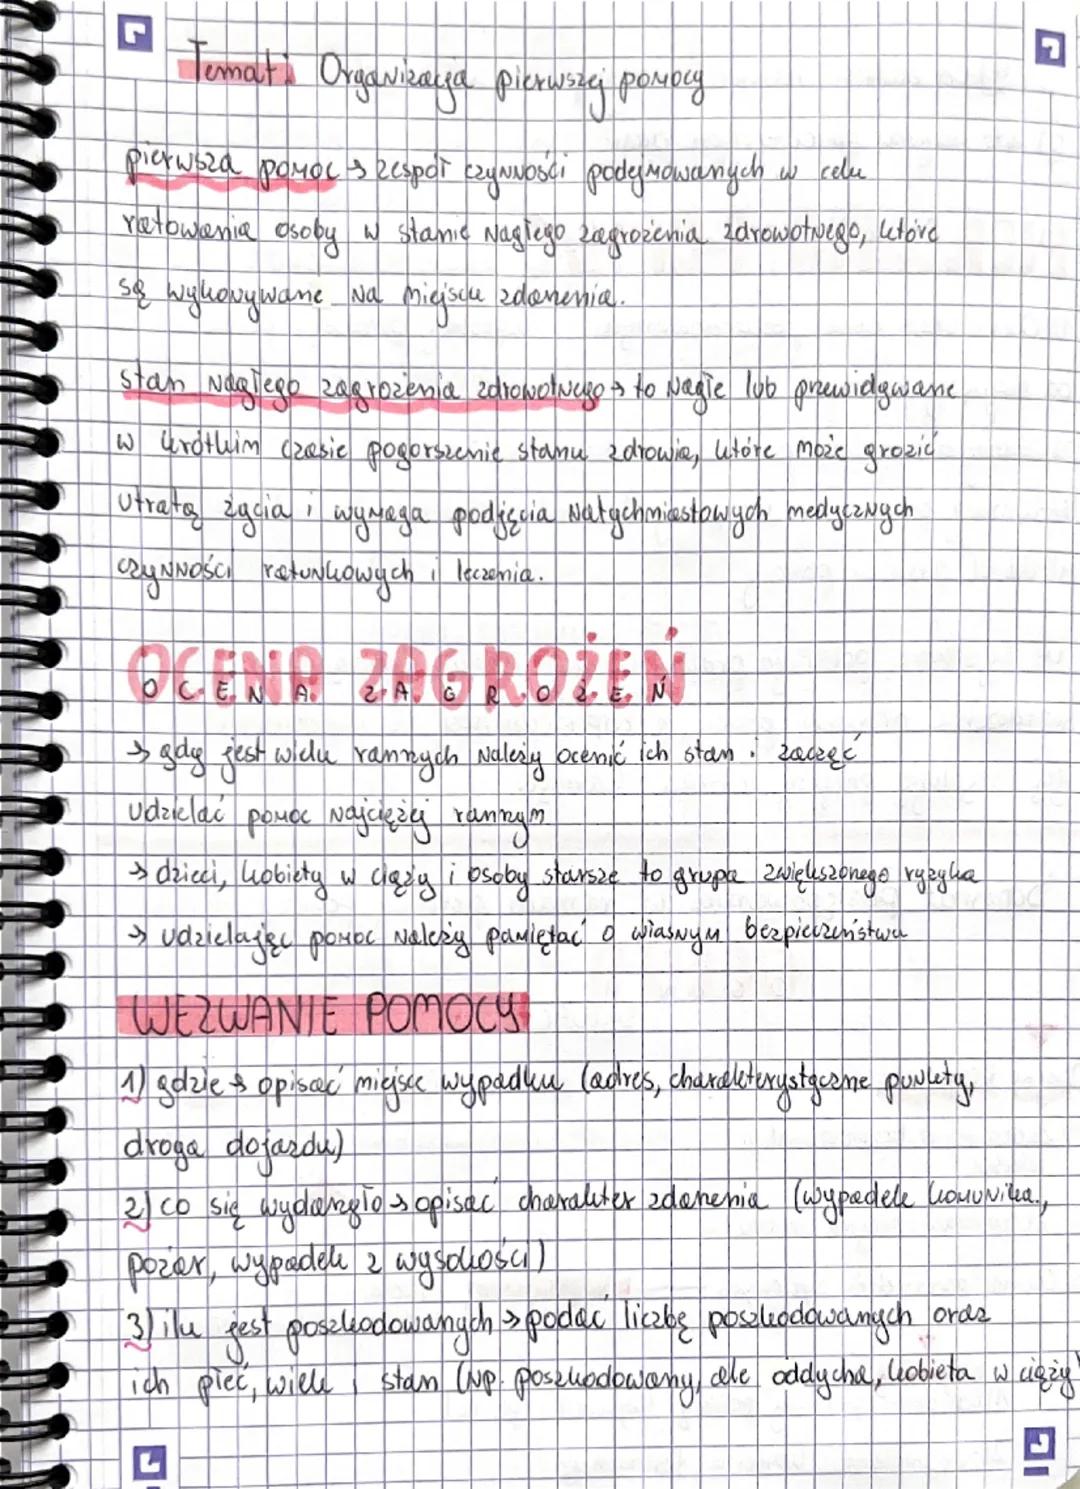 Temat: Organizacja pierwszej pomocy
pierwsza pomoc → zespół czynności podejmowanych w celu
ratowania osoby w stanie nagłego zagrożenia zdrowotnego, które
są wykonywane na miejscu zdarzenia.
stan nagłego zagrożenia zdrowotnego → to nagłe lub przewidywane
w krótkim czasie pogorszenie stanu zdrowia, które może grozić
utratą życia i wymaga podjęcia natychmiastowych medycznych
czynności ratunkowych i leczenia.
OCENA ZAGROŻEŃ
→ gdy jest wielu rannych należy ocenić ich stan i zacząć
udzielać pomoc najciężej rannym
→ dzieci, kobiety w ciąży i osoby starsze to grupa zwiększonego ryzyka
→ udzielając pomoc należy pamiętać o własnym bezpieczeństwu
WEZWANIE POMOCY
1) gdzie → opisać miejsce wypadku (adres, charakterystyczne punkty,
droga dojazdu)
2) co się wydarzyło → opisać charakter zdarzenia (wypadek komunika.,
pożar, wypadek z wysokości)
3) ilu jest poszkodowanych → podać liczbę poszkodowanych oraz
ich płeć, wiek i stan (np. poszkodowany, ale oddycha, kobieta w ciąży)